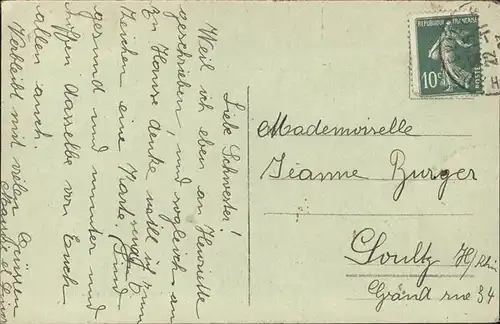 Liebe Schwester!
Weil ich eben an Henriette
geschrieben, und sogleich an
zu Hause denke will ich zum
Zeichen eine Karte. Sind
noch
gesund und munter und
hoffen dasselbe von Euch
allen auch.
Verbleibt mit vielen Grüssen
REPUBLIQUE FRANÇAISE
10c
POSTES
Mademoiselle
Jeanne Burger
Soultz H/Rh.
Grand rue 34